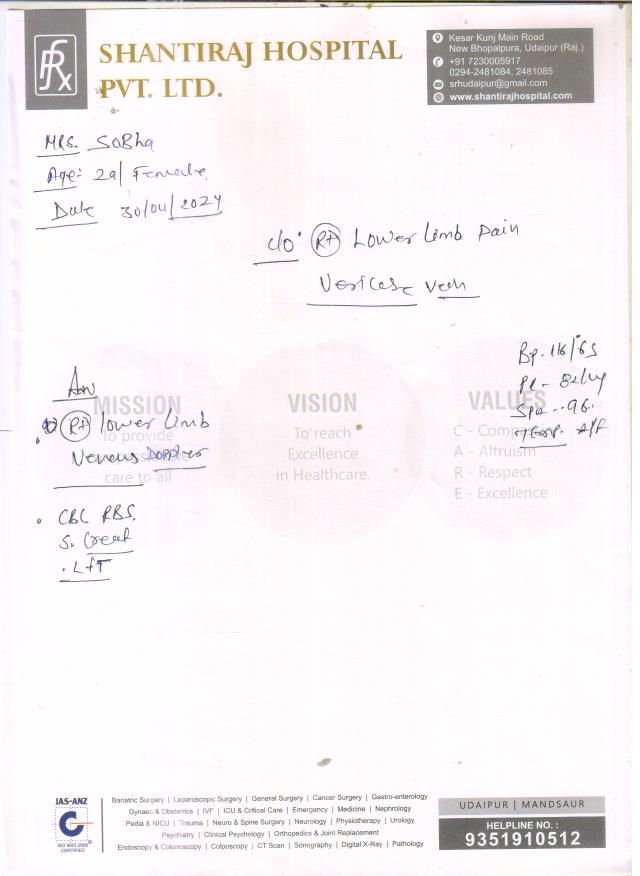 SHANTIRAJ HOSPITAL
PVT. LTD.
Kesar Kunj Main Road
New Bhopalpura, Udaipur (Raj.)
+91 7230005917
0294-2481084, 2481085
srhudaipur@gmail.com
www.shantirajhospital.com
MRS. SOBHA
Age: 29/ Female
Date 30/04/2024
c/o Rt Lower limb pain
Vericose vein
Bp. 116/65
PR - 82/
SpO2 - 96
Temp. A/F
Adv
MISSION
To provide
care to all
VISION
To reach
Excellence
in Healthcare.
VALUES
C - Compassion
A - Altruism
R - Respect
E - Excellence
Rt lower limb
Venous Doppler
CBC RBS.
S. Creat
. LFT
JAS-ANZ
C
ISO 9001:2000
CERTIFIED
Bariatric Surgery | Laparoscopic Surgery | General Surgery | Cancer Surgery | Gastro-enterology
Gynaec & Obstetrics | IVF | ICU & Critical Care | Emergency | Medicine | Nephrology
Pedia & NICU | Trauma | Neuro & Spine Surgery | Neurology | Physiotherapy | Urology
Psychiatry | Clinical Psychology | Orthopedics & Joint Replacement
Endoscopy & Colonoscopy | Colposcopy | CT Scan | Sonography | Digital X-Ray | Pathology
UDAIPUR | MANDSAUR
HELPLINE NO. :
9351910512